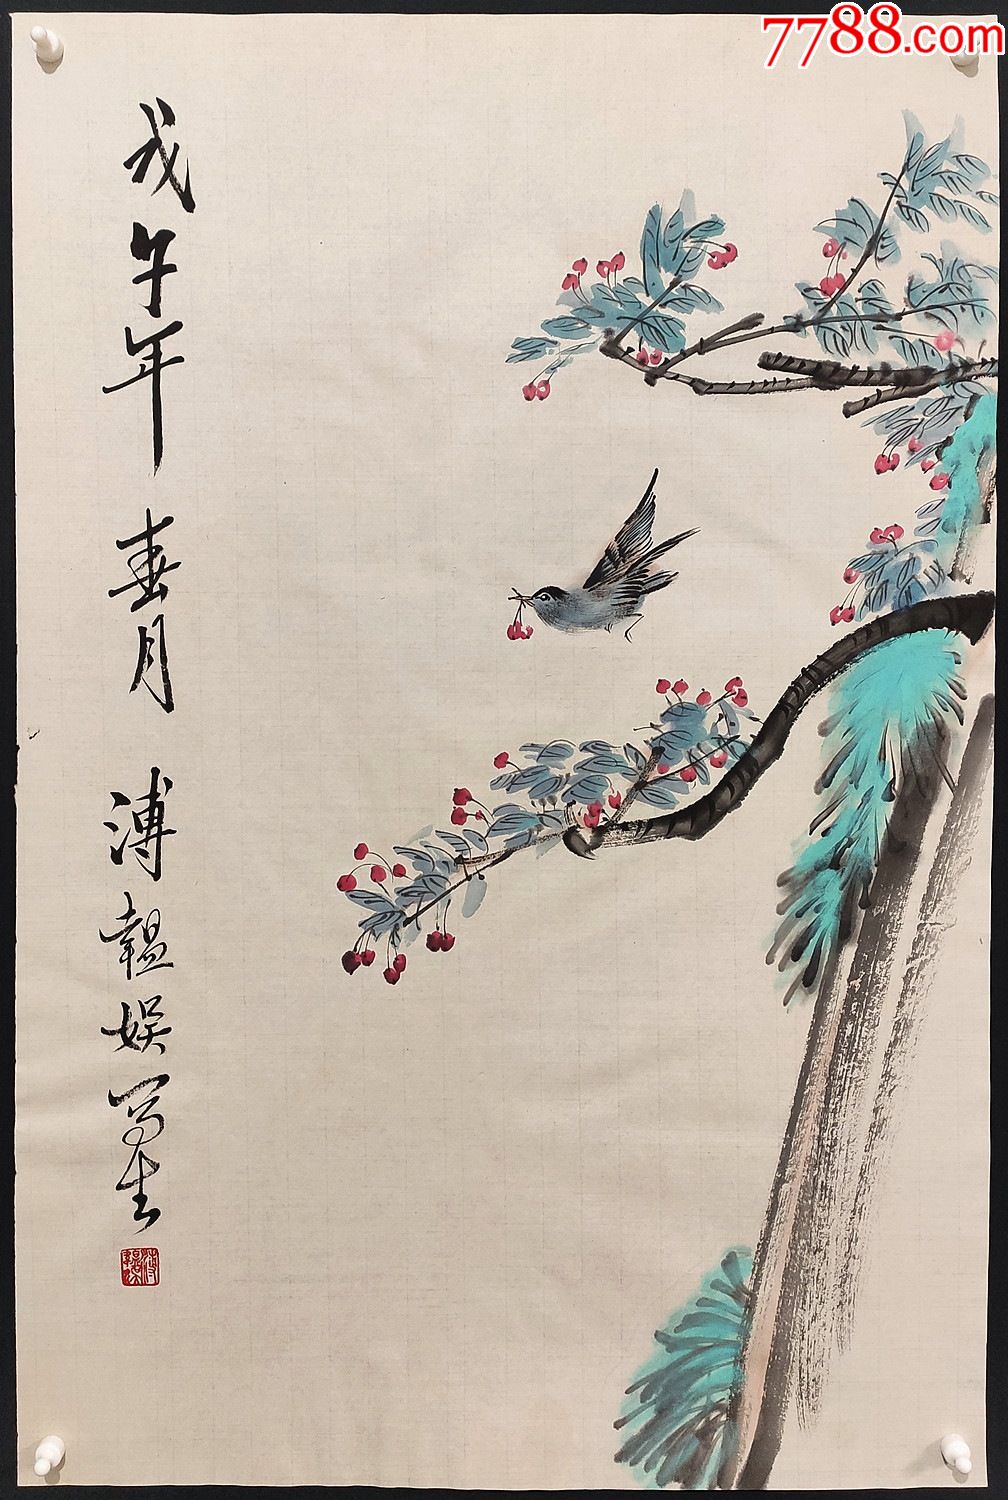 7788.com
戊午年 春月 溥韞娱写生